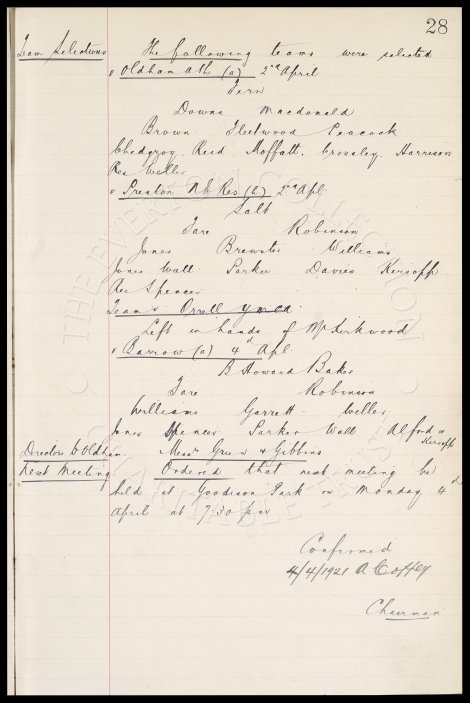 28
Team Selections The following teams were selected
v Oldham Ath (a) 2nd April
Fern
Downs Macdonald
Brown Fleetwood Peacock
Chedgzoy Reid Moffatt Crossley Harrison
Res Weller
v Preston N E Res (h) 2nd Apl
Salt
Fare Robinson
Jones Brewster Williams
Jones Wall Parker Davies Kirsopp
Res Spencer
Team v Orrell
Left in hands of Mr Kirkwood
v Barrow (a) 4th Apl
B Howard Baker
Fare Robinson
Williams Garrett Weller
Jones Spencer Parker Wall Alford or Kirsopp
Directors to Oldham Messrs Green & Gibbins
Next Meeting Ordered that next meeting be
held at Goodison Park on Monday 4th
April at 7/30 pm
Confirmed
4/4/1921 A Coffey
Chairman
THE EVERTON COLLECTION
CHARITABLE TRUST